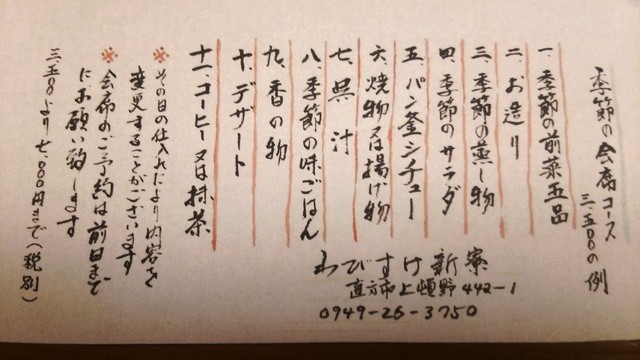 季節の会席コース
三、五〇〇の例
一、季節の前菜五品
二、お造り
三、季節の蒸し物
四、季節のサラダ
五、パン釜シチュー
六、焼物又は揚げ物
七、呉汁
八、季節の味ごはん
九、香の物
十、デザート
十一、コーヒー又は抹茶
※その日の仕入れにより内容を
変更することがございます
※会席のご予約は前日まで
にお願い致します
三、五〇〇より七、〇〇〇円まで(税別)
わびすけ新寮
直方市上頓野442-1
0949-26-3750